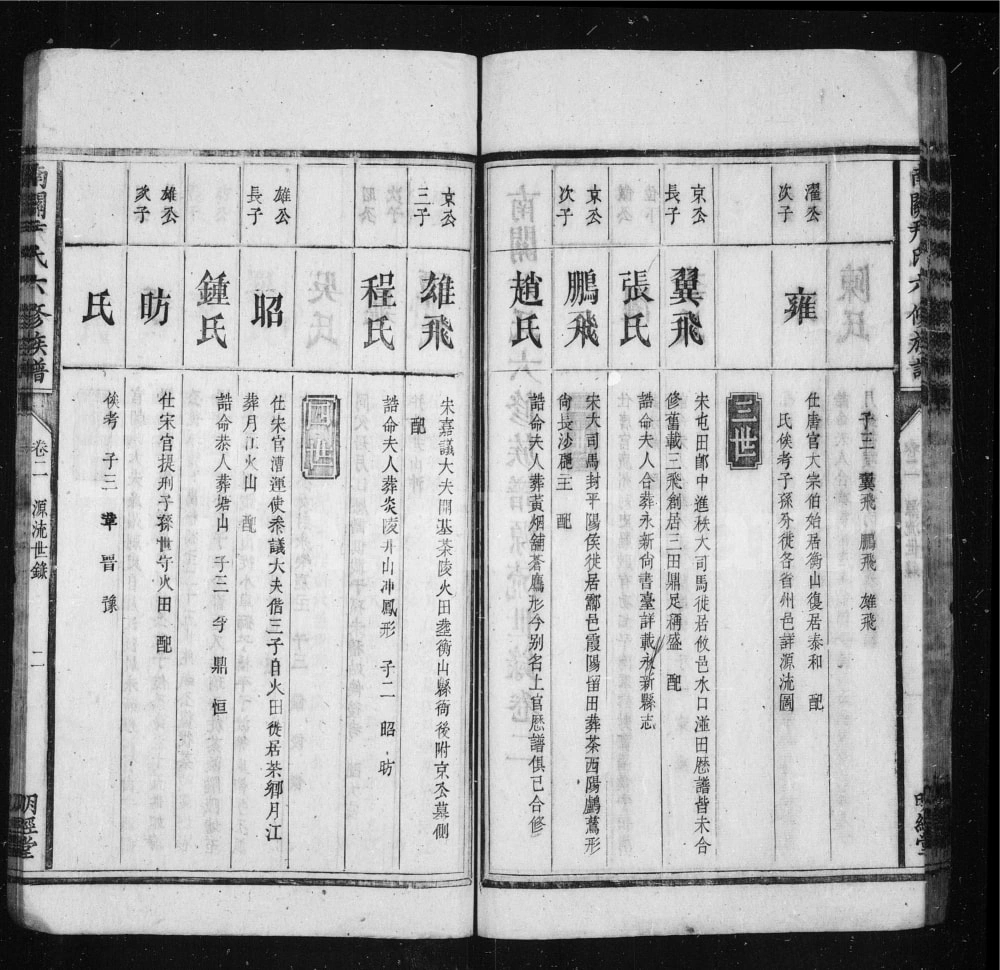 月 子三 翼飛 鵬飛 雄飛
濯公
次子
雍
仕唐官大宗伯始居衡山復居泰和 配
氏俟考子孫分徙各省州邑詳源流圖
三世
京公
長子
翼飛
宋屯田郎中進秩大司馬徙居攸邑水口湴田歷譜皆未合
修舊載三飛創居三田鼎足稱盛 配
張氏
誥命夫人合葬永新尚書臺詳載永新縣志
京公
次子
鵬飛
宋大司馬封平陽侯徙居酃邑霞陽留田葬茶西陽鸕鶿形
尚長沙郡主 配
趙氏
誥命夫人葬黃烟舖蒼鷹形今别名上官歷譜俱已合修
京公
三子
雄飛
宋嘉議大夫開基茶陵火田塟衡山縣衙後附京公墓側
配
程氏
誥命夫人葬炎陵井山冲鳳形 子二 昭 昉
四世
雄公
長子
昭
仕宋官漕運使奉議大夫偕三子自火田徙居茶鄉月江
葬月江火山 配
鍾氏
誥命恭人葬塘山 子三 亨 鼎 恒
雄公
次子
昉
仕宋官提刑子孫世守火田 配
氏
俟考 子三 章 晉 豫
南關尹氏六修族譜
卷二 源流世錄 二
明經堂